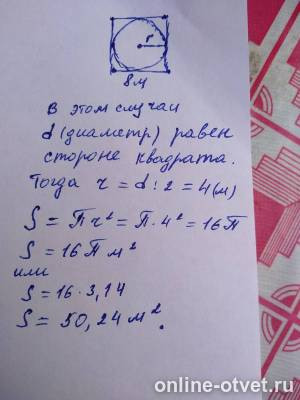 r
8 м
В этом случаи
d (диаметр) равен
стороне квадрата.
Тогда r = d : 2 = 4 (м)
S = Пr² = П · 4² = 16П
S = 16 П м²
или
S = 16 · 3,14
S = 50,24 м².
online-otvet.ru